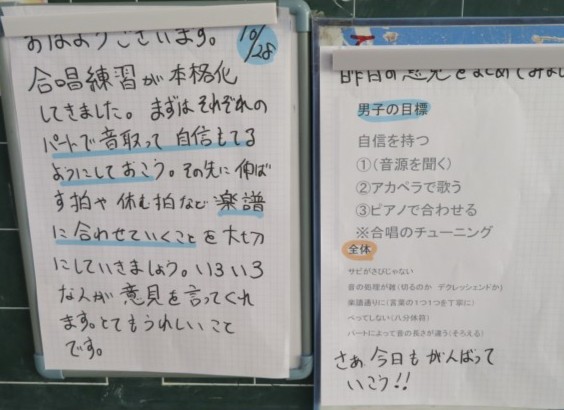 おはようございます。
10/28
合唱練習が本格化
してきました。まずはそれぞれの
パートで音取って自信もてる
ようにしておこう。その先に伸ば
す拍や休む拍など楽譜
に合わせていくことを大切
にしていきましょう。いろいろ
な人が意見を言ってくれ
ます。とてもうれしいこと
です。
昨日の意見をまとめてみまし
男子の目標
自信を持つ
①(音源を聞く)
②アカペラで歌う
③ピアノで合わせる
※合唱のチューニング
全体
サビがさびじゃない
音の処理が雑(切るのか デクレッシェンドか)
楽譜通りに(言葉の1つ1つを丁寧に)
べってしない(八分休符)
パートによって音の長さが違う(そろえる)
さぁ 今日もがんばって
いこう!!